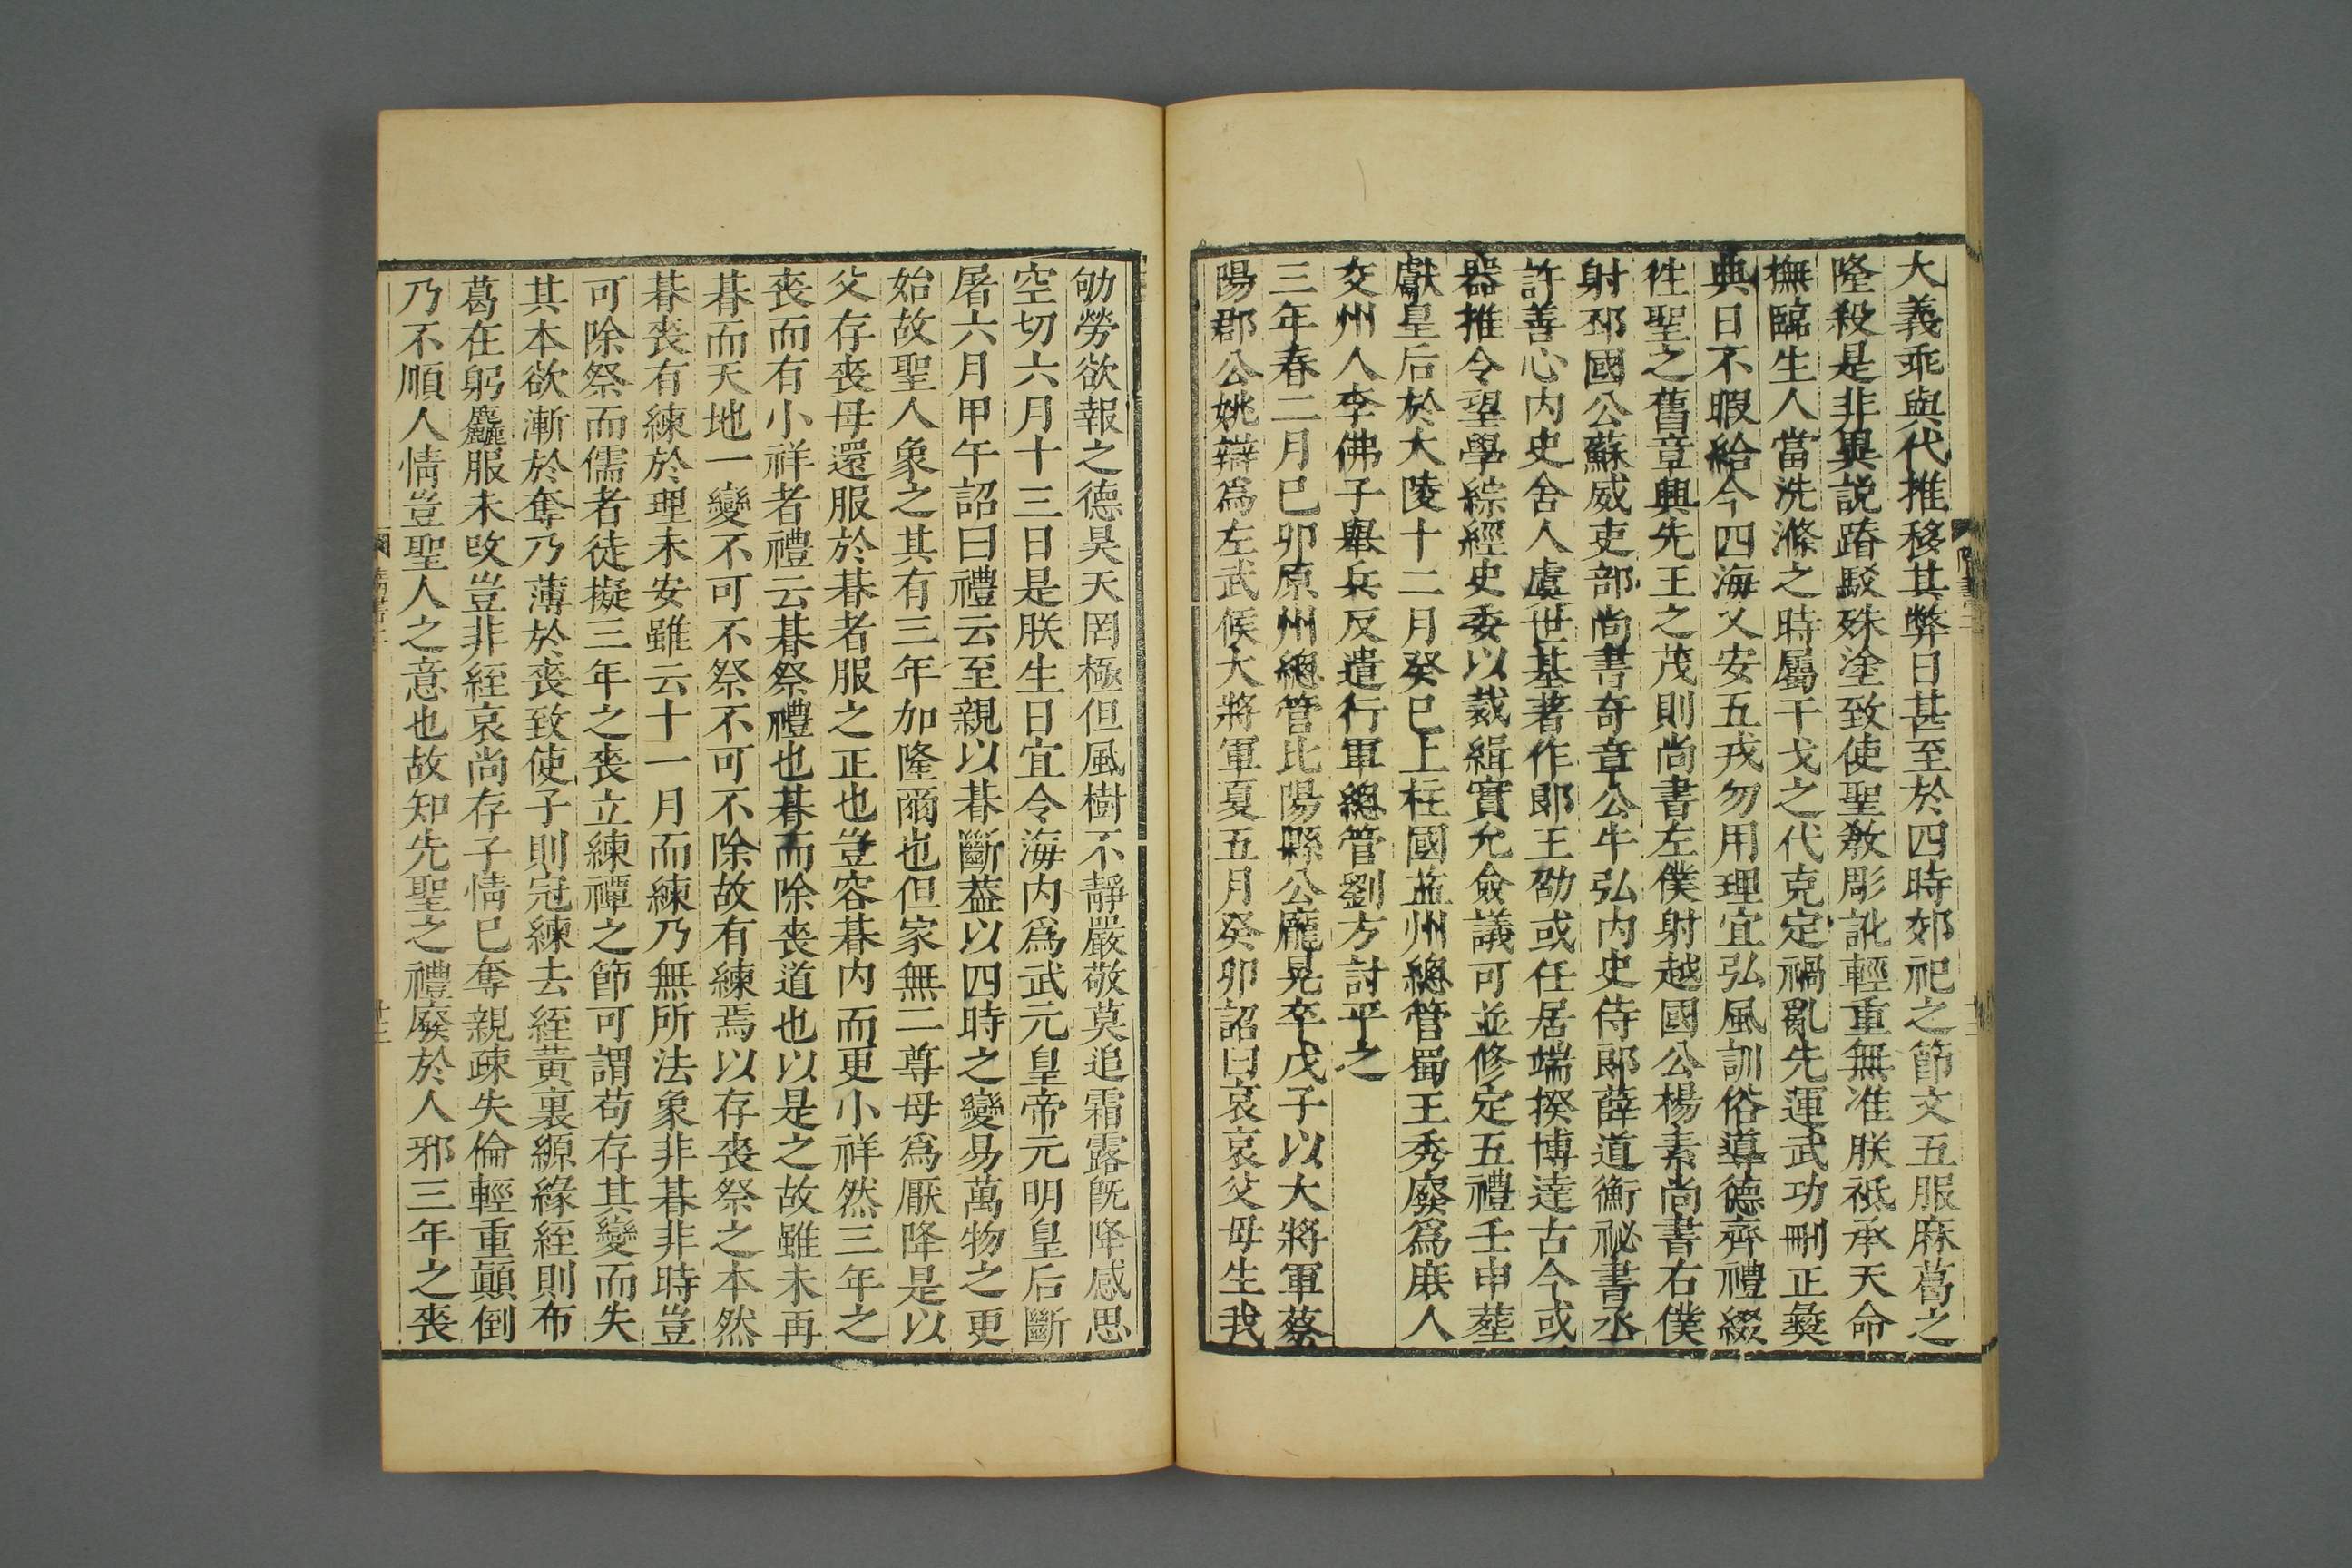 大義乖與代推移其弊日甚至於四時郊祀之節文五服麻葛之
隆殺是非異說踳駁殊塗致使聖敎彫訛輕重無准朕祗承天命
撫臨生人當洗滌之時屬干戈之代克定禍亂先運武功刪正彝
典日不暇給今四海乂安五戎勿用理宜弘風訓俗導德齊禮綴
徃聖之舊章興先王之茂則尚書左僕射越國公楊素尚書右僕
射邳國公蘇威吏部尚書奇章公牛弘内史侍郎薛道衡祕書丞
許善心内史舍人虞世基著作郎王劭或任居端揆博達古今或
器推令望學綜經史委以裁緝實允僉議可並修定五禮壬申葬
獻皇后於大陵十二月癸巳上柱國益州總管蜀王秀廢爲庶人
交州人李佛子舉兵反遣行軍總管劉方討平之
三年春二月己卯原州總管比陽縣公龐晃卒戊子以大將軍蔡
陽郡公姚辯爲左武候大將軍夏五月癸卯詔曰哀哀父母生我
劬勞欲報之德昊天罔極但風樹不靜嚴敬莫追霜露旣降感思
空切六月十三日是朕生日宜令海内爲武元皇帝元明皇后斷
屠六月甲午詔曰禮云至親以朞斷葢以四時之變易萬物之更
始故聖人象之其有三年加隆爾也但家無二尊母爲厭降是以
父存喪母還服於朞者服之正也豈容朞内而更小祥然三年之
喪而有小祥者禮云朞祭禮也朞而除喪道也以是之故雖未再
朞而天地一變不可不祭不可不除故有練焉以存喪祭之本然
朞喪有練於理未安雖云十一月而練乃無所法象非朞非時豈
可除祭而儒者徒擬三年之喪立練禫之節可謂苟存其變而失
其本欲漸於奪乃薄於喪致使子則冠練去絰黃裏縓緣絰則布
葛在躬麤服未改豈非絰哀尚存子情已奪親疎失倫輕重顚倒
乃不順人情豈聖人之意也故知先聖之禮廢於人邪三年之喪